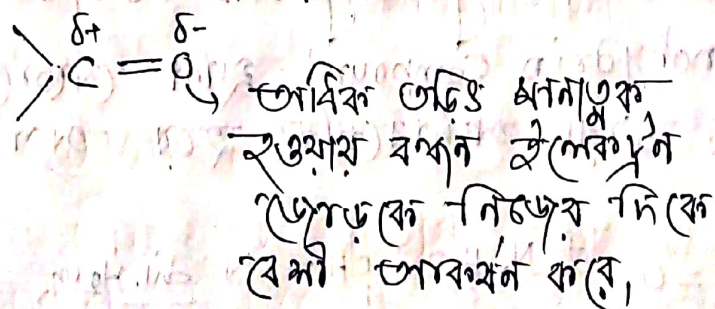 δ+ δ-
C = O
অধিক তড়িৎ ঋনাত্নক
হওয়ায় বন্ধন ইলেকট্রন
জোড়কে নিজের দিকে
বেশী আকর্ষন করে,